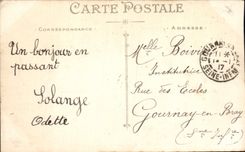 CARTE POSTALE
CORRESPONDANCE
ADRESSE
Un bonjour en
passant
Solange
Odette
Melle Boivin
Institutrice
Rue des Ecoles
Gournay-en-Bray
(Sne Infre)
GOURNAY
17
SEINE-INFRE